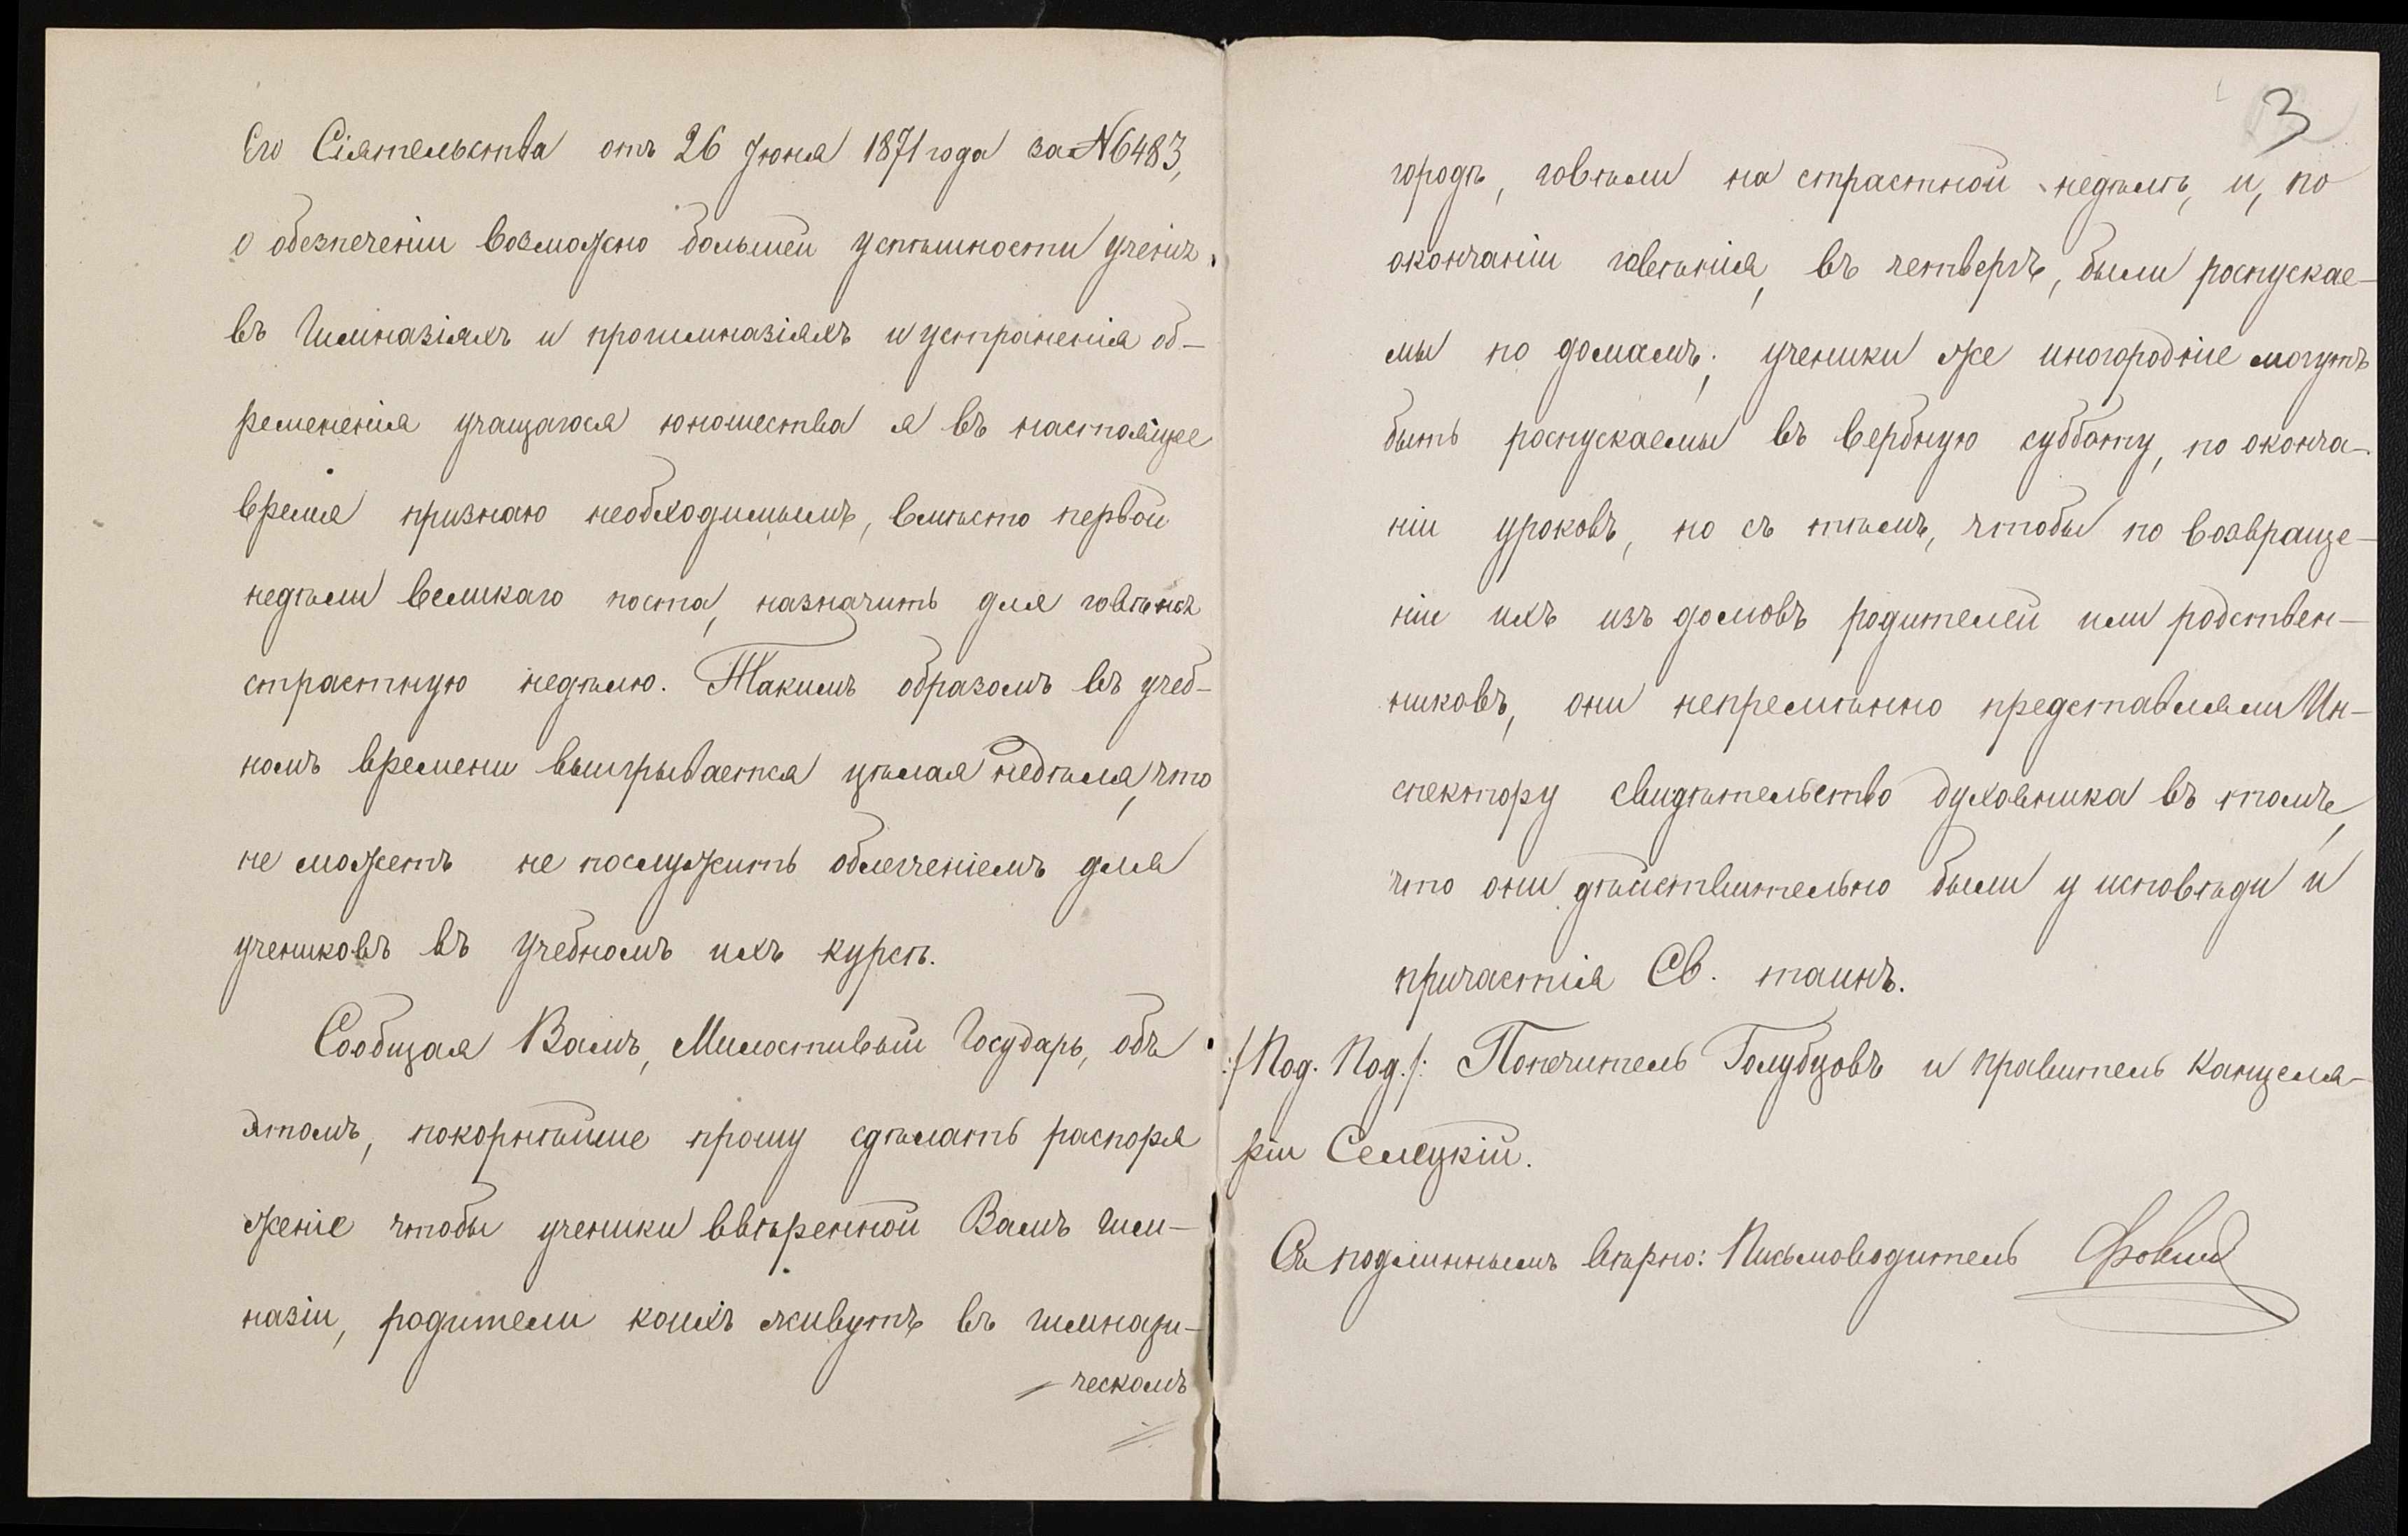 Его Сіятельства отъ 26 Іюня 1871 года за № 6483,
о обезпеченіи возможно большей успѣшности ученія
въ Гимназіяхъ и прогимназіяхъ и устраненія об-
ремененія учащагося юношества я въ настоящее
время признаю необходимымъ, вмѣсто первой
недѣли великаго поста, назначить для говѣнія
страстную недѣлю. Такимъ образомъ въ учеб-
номъ времени выигрывается цѣлая недѣля, что
не можетъ не послужить облегченіемъ для
учениковъ въ учебномъ ихъ курсѣ.
Сообщая Вамъ, Милостивый Государь, объ
этомъ, покорнѣйше прошу сдѣлать распоря
женіе чтобы ученики ввѣренной Вамъ гим-
назіи, родители коихъ живутъ въ гимнази-
ческомъ
3
городѣ, говѣли на страстной недѣлѣ, и, по
окончаніи говѣнія, въ четвергъ, были роспускае-
мы по домамъ; ученики же иногородніе могутъ
быть роспускаемы въ вербную субботу, по оконча-
ніи уроковъ, но съ тѣмъ, чтобы по возвраще-
ніи ихъ изъ домовъ родителей или родствен-
никовъ, они непремѣнно представляли Ин-
спектору свидѣтельство духовника въ томъ,
что они дѣйствительно были у исповѣди и
причастія Св. таинъ.
:/Под. Под./: Попечитель Голубцовъ и правитель Канцеля-
ріи Семецкій.
Съ подлиннымъ вѣрно: Письмоводитель